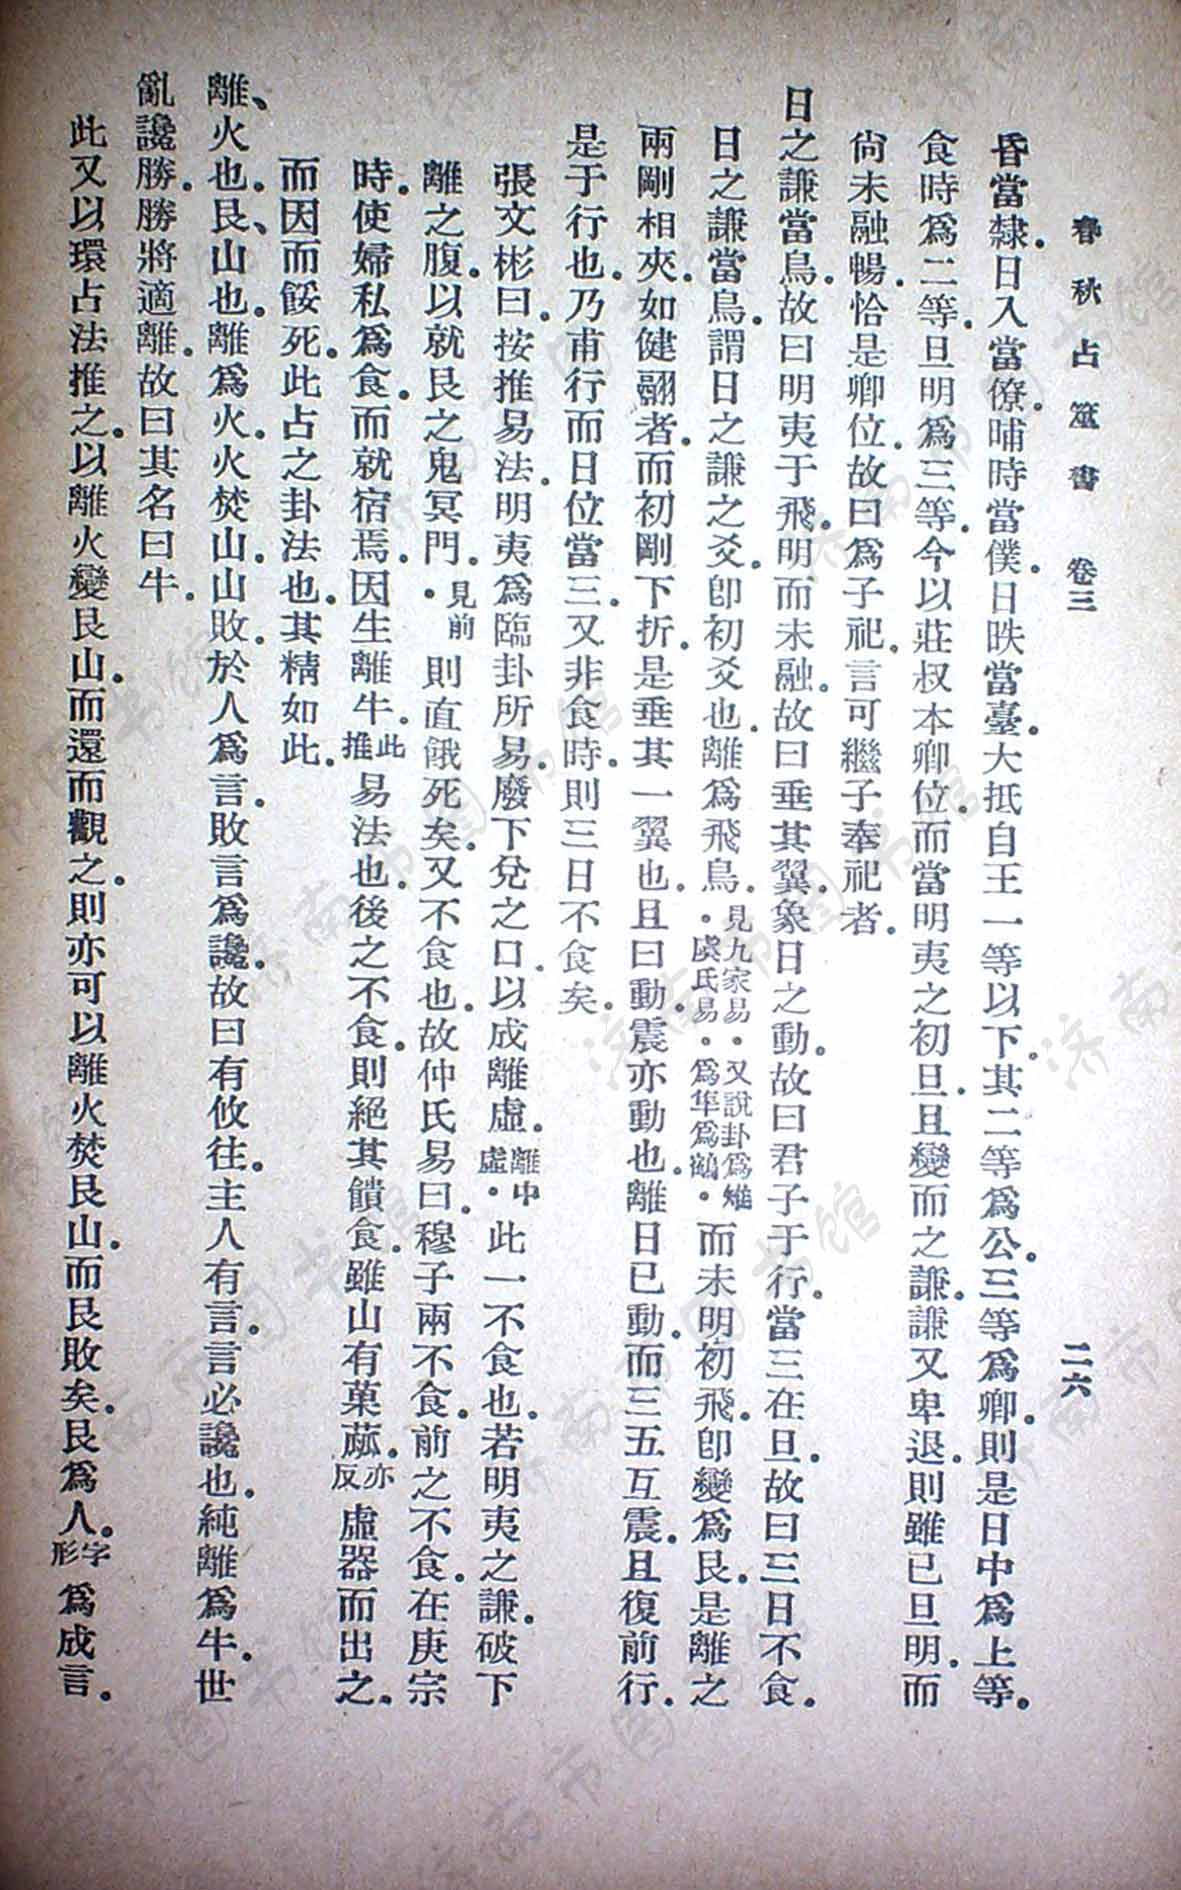 春秋占筮書　卷三　二六
昏當隸。日入當僚。晡時當僕。日昳當臺。大抵自王一等以下。其二等爲公。三等爲卿。則是日中爲上等。
食時爲二等。旦明爲三等。今以莊叔本卿位。而當明夷之初旦。且變而之謙。謙又卑退。則雖已旦明。而
尙未融暢。恰是卿位。故曰爲子祀。言可繼子奉祀者。
日之謙當鳥。故曰明夷于飛。明而未融。故曰垂其翼。象日之動。故曰君子于行。當三在旦。故曰三日不食。
日之謙當鳥。謂日之謙之爻。卽初爻也。離爲飛鳥。見九家易・又說卦爲雉・虞氏易・爲隼爲鶴・而未明初飛。卽變爲艮。是離之
兩剛相夾。如健翮者。而初剛下折。是垂其一翼也。且曰動。震亦動也。離日已動。而三五互震。且復前行。
是于行也。乃甫行而日位當三。又非食時。則三日不食矣。
張文彬曰。按推易法。明夷爲臨卦所易。廢下兌之口。以成離虛。離中虛・此一不食也。若明夷之謙。破下
離之腹。以就艮之鬼冥門。見前・則直餓死矣。又不食也。故仲氏易曰。穆子兩不食。前之不食。在庚宗
時。使婦私爲食。而就宿焉。因生離牛。此推易法也。後之不食。則絕其饋食。雖山有菓蓏。亦反虛器而出之。
而因而餒死。此占之卦法也。其精如此。
離、火也。艮、山也。離爲火。火焚山。山敗。於人爲言。敗言爲讒。故曰有攸往。主人有言。言必讒也。純離爲牛。世
亂讒勝。勝將適離。故曰其名曰牛。
此又以環占法推之。以離火變艮山。而還而觀之。則亦可以離火焚艮山。而艮敗矣。艮爲人。字形爲成言。